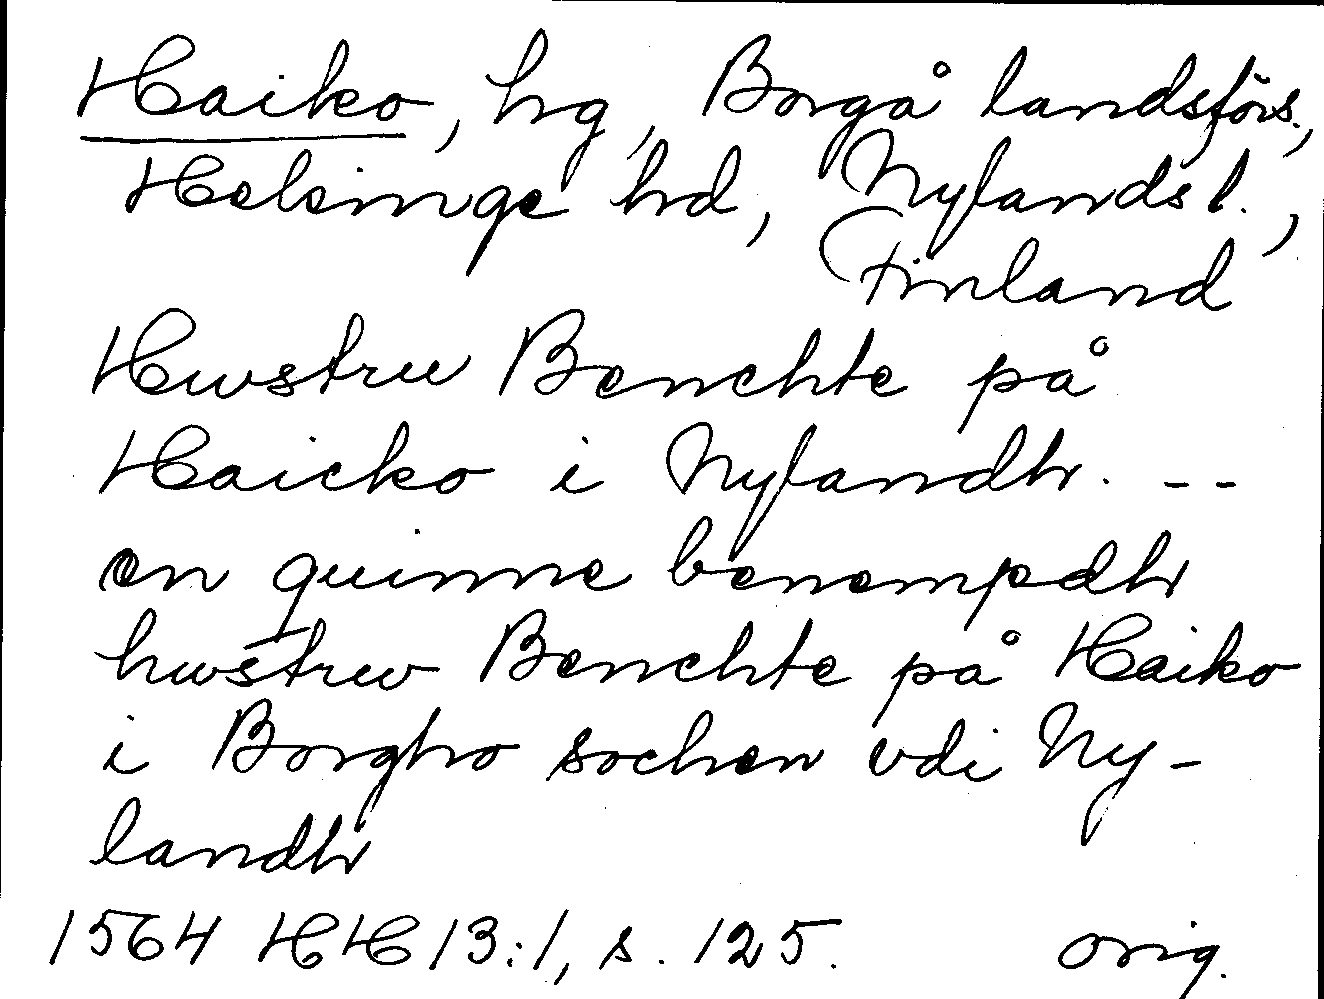 Haiko, hg, Borgå landsförs.,
Helsinge hd, Nylands l.,
Finland
Hwstru Benchte på
Haicko i Nylandh. --
en quinne benempdh
hwstrw Benchte på Haiko
i Borgho sochen vdi Ny-
landh
1564 HH 13:1, s. 125. orig.